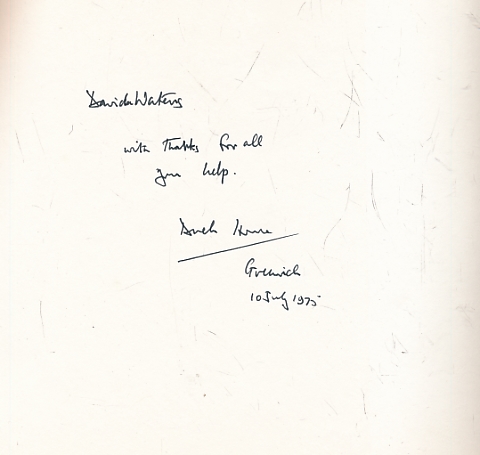 David Waters
with thanks for all
your help.
Derek Howse
Greenwich
10 July 1975